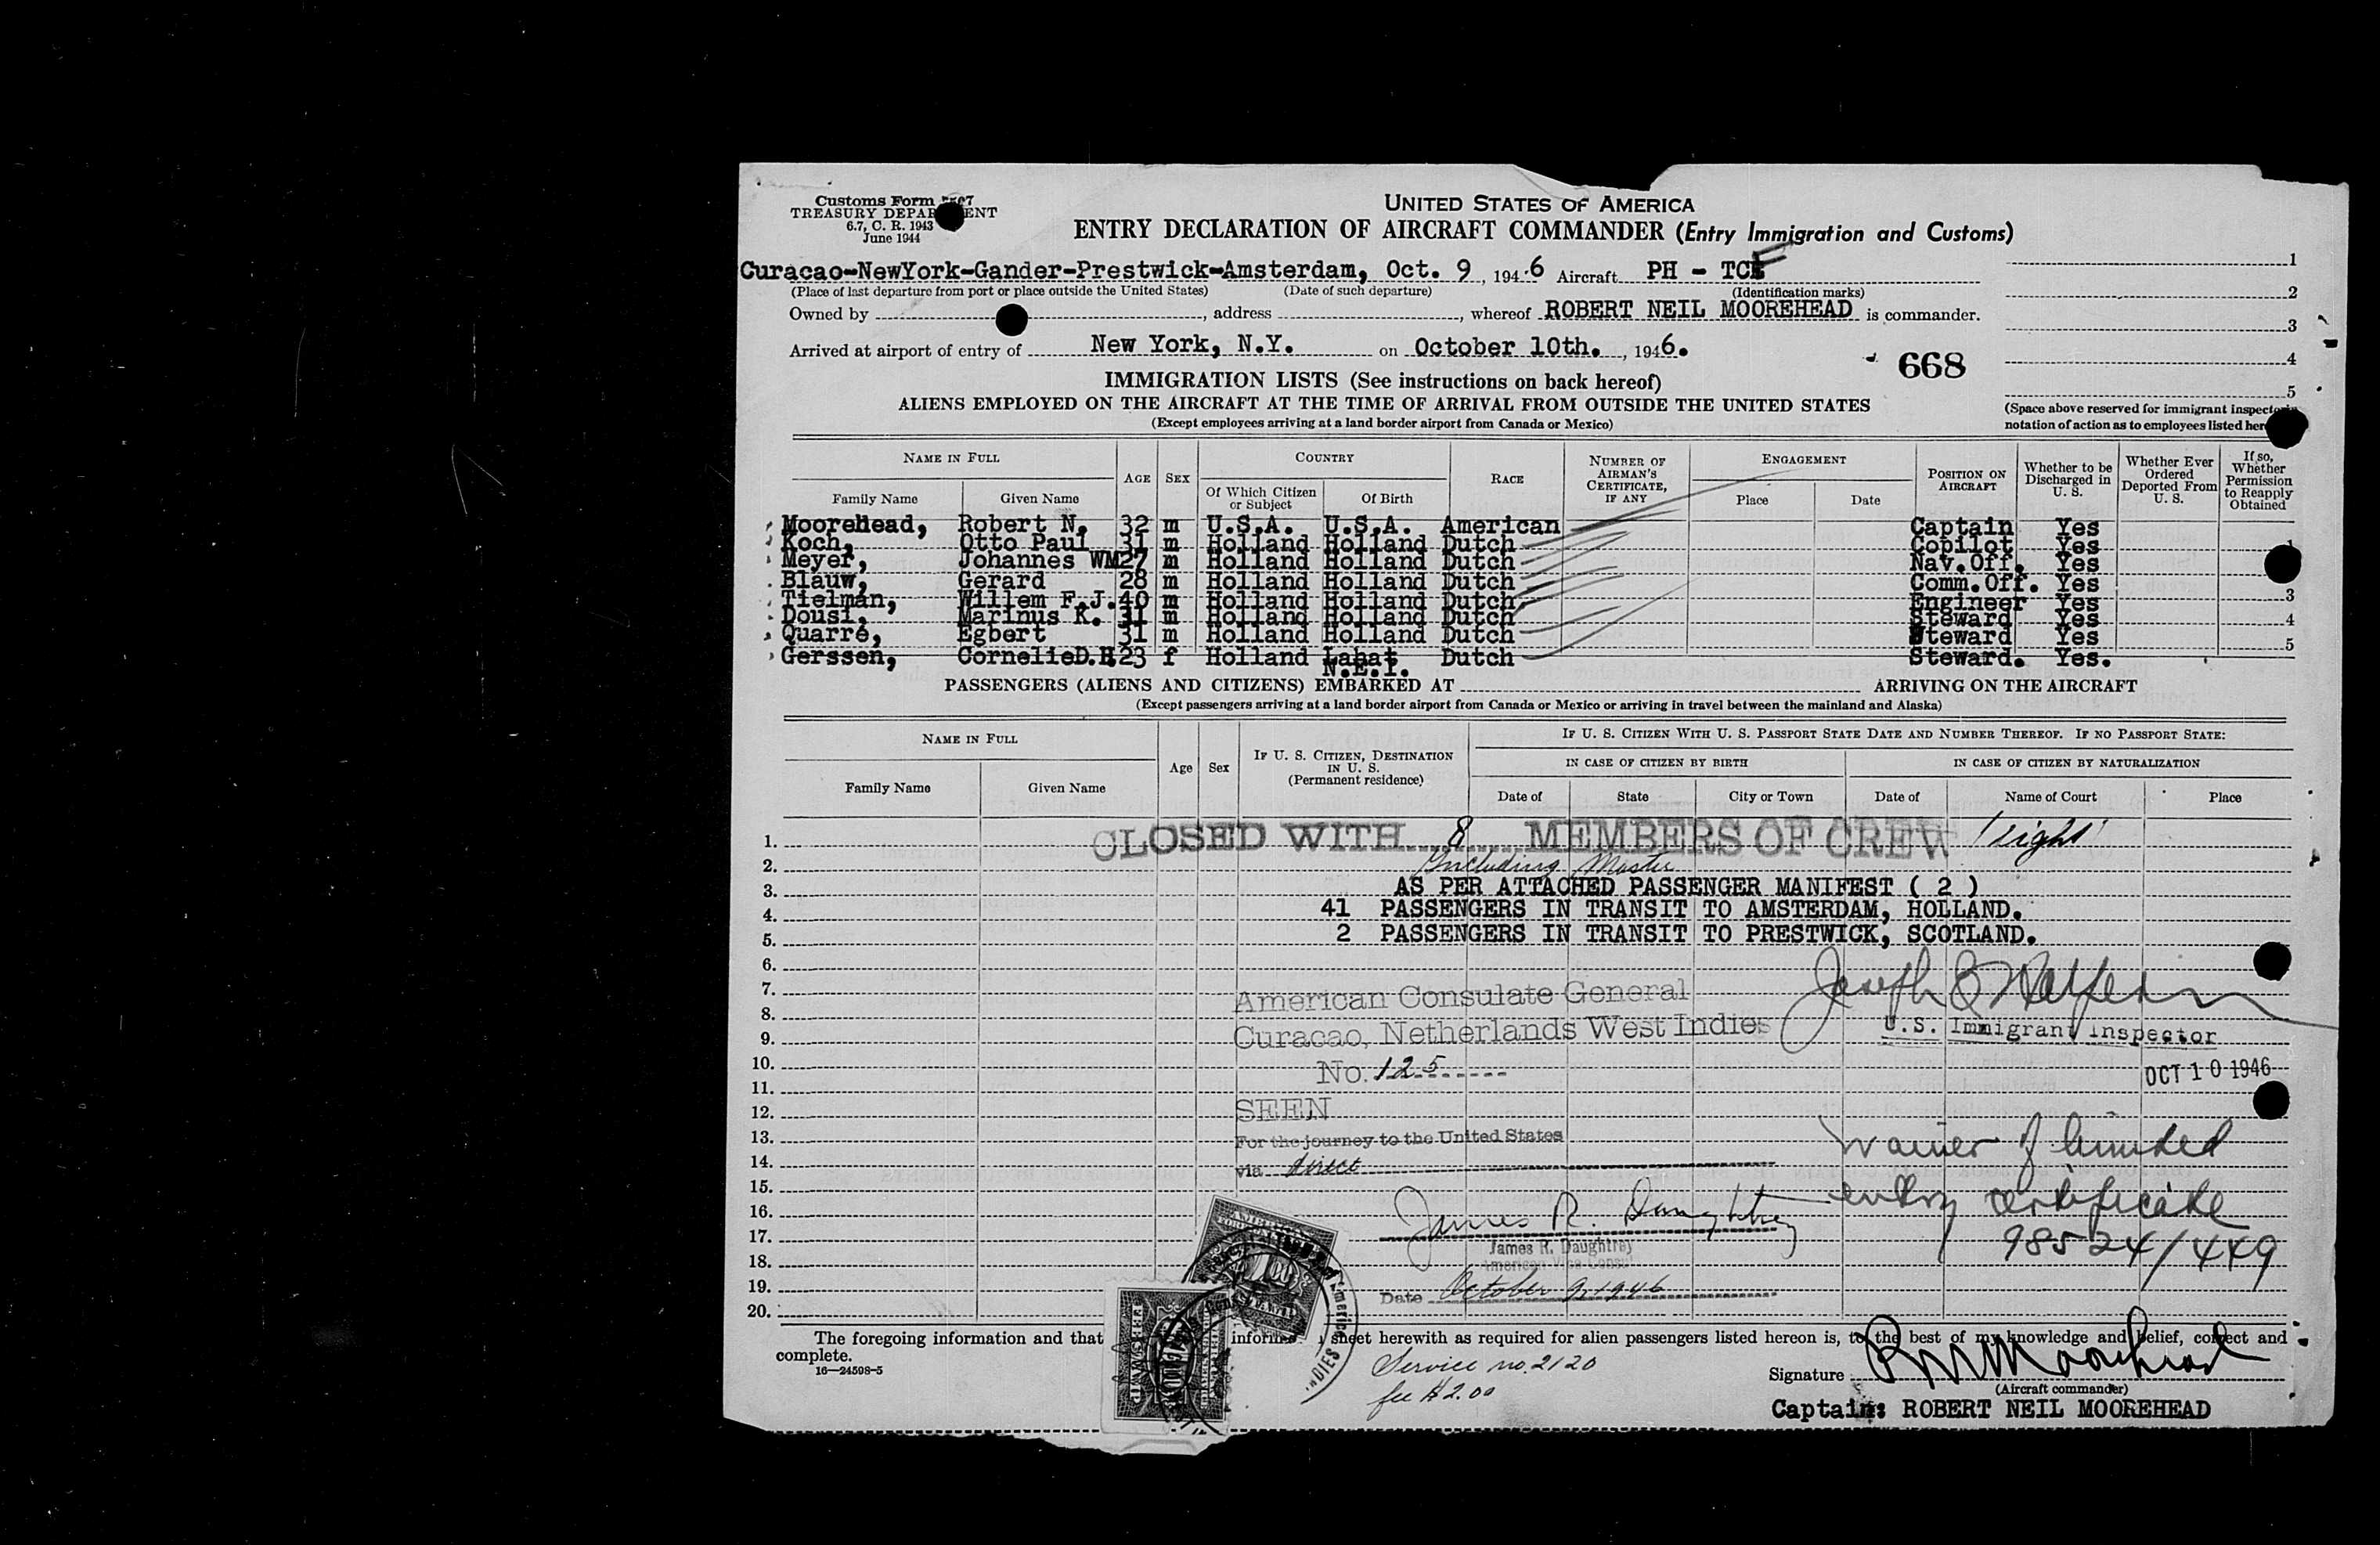 Customs Form
TREASURY DEPARTMENT
6.7, C. R. 1943
June 1944
UNITED STATES OF AMERICA
ENTRY DECLARATION OF AIRCRAFT COMMANDER (Entry Immigration and Customs)
Curacao-NewYork-Gander-Prestwick-Amsterdam, Oct. 9, 1946 Aircraft PH - TCF
(Place of last departure from port or place outside the United States) (Date of such departure) (Identification marks)
Owned by , address , whereof ROBERT NEIL MOOREHEAD is commander.
Arrived at airport of entry of New York, N.Y. on October 10th. , 1946.
668
1
2
3
4
5
(Space above reserved for immigrant
notation of action as to employees listed
IMMIGRATION LISTS (See instructions on back hereof)
ALIENS EMPLOYED ON THE AIRCRAFT AT THE TIME OF ARRIVAL FROM OUTSIDE THE UNITED STATES
(Except employees arriving at a land border airport from Canada or Mexico)
NAME IN FULL AGE SEX COUNTRY RACE NUMBER OF AIRMAN'S CERTIFICATE, IF ANY ENGAGEMENT POSITION ON AIRCRAFT Whether to be Discharged in U. S. Whether Ever Ordered Deported From U. S. If so, Whether Permission to Reapply Obtained
Family Name Given Name Of Which Citizen or Subject Of Birth Place Date
Moorehead, Robert N. 32 m U.S.A. U.S.A. American Captain Yes
Koch, Otto Paul 31 m Holland Holland Dutch Copilot Yes
Meyer, Johannes WM 27 m Holland Holland Dutch Nav.Off. Yes
Blauw, Gerard 28 m Holland Holland Dutch Comm.Off. Yes
Tielman, Willem F.J. 40 m Holland Holland Dutch Engineer Yes 3
Dousi, Marinus K. 31 m Holland Holland Dutch Steward Yes 4
Quarré, Egbert 31 m Holland Holland Dutch Steward Yes 5
Gerssen, CornelieD.H. 23 f Holland Lahat N.E.I. Dutch Steward. Yes.
PASSENGERS (ALIENS AND CITIZENS) EMBARKED AT ARRIVING ON THE AIRCRAFT
(Except passengers arriving at a land border airport from Canada or Mexico or arriving in travel between the mainland and Alaska)
NAME IN FULL Age Sex IF U. S. CITIZEN, DESTINATION IN U. S. (Permanent residence) IF U. S. CITIZEN WITH U. S. PASSPORT STATE DATE AND NUMBER THEREOF. IF NO PASSPORT STATE:
IN CASE OF CITIZEN BY BIRTH IN CASE OF CITIZEN BY NATURALIZATION
Family Name Given Name Date of State City or Town Date of Name of Court Place
1. CLOSED WITH 8 MEMBERS OF CREW
2. Including Master
3. AS PER ATTACHED PASSENGER MANIFEST ( 2 )
4. 41 PASSENGERS IN TRANSIT TO AMSTERDAM, HOLLAND.
5. 2 PASSENGERS IN TRANSIT TO PRESTWICK, SCOTLAND.
6.
7. American Consulate General
8.
9. Curacao, Netherlands West Indies U.S. Immigrant Inspector
10. No. 125
11. OCT 10 1946
12. SEEN
13. For the journey to the United States waiver of limited
14. via direct
15.
16. James R. Daughtrey entry certificate
17. James R. Daughtrey 98524/449
18. American Vice Consul
19. Date October 9, 1946
20.
The foregoing information and that sheet herewith as required for alien passengers listed hereon is, to the best of my knowledge and belief, correct and
complete.
16—24598-5
Service no. 2120
fee $2.00
Signature RNMoorehead
(Aircraft commander)
Captain: ROBERT NEIL MOOREHEAD